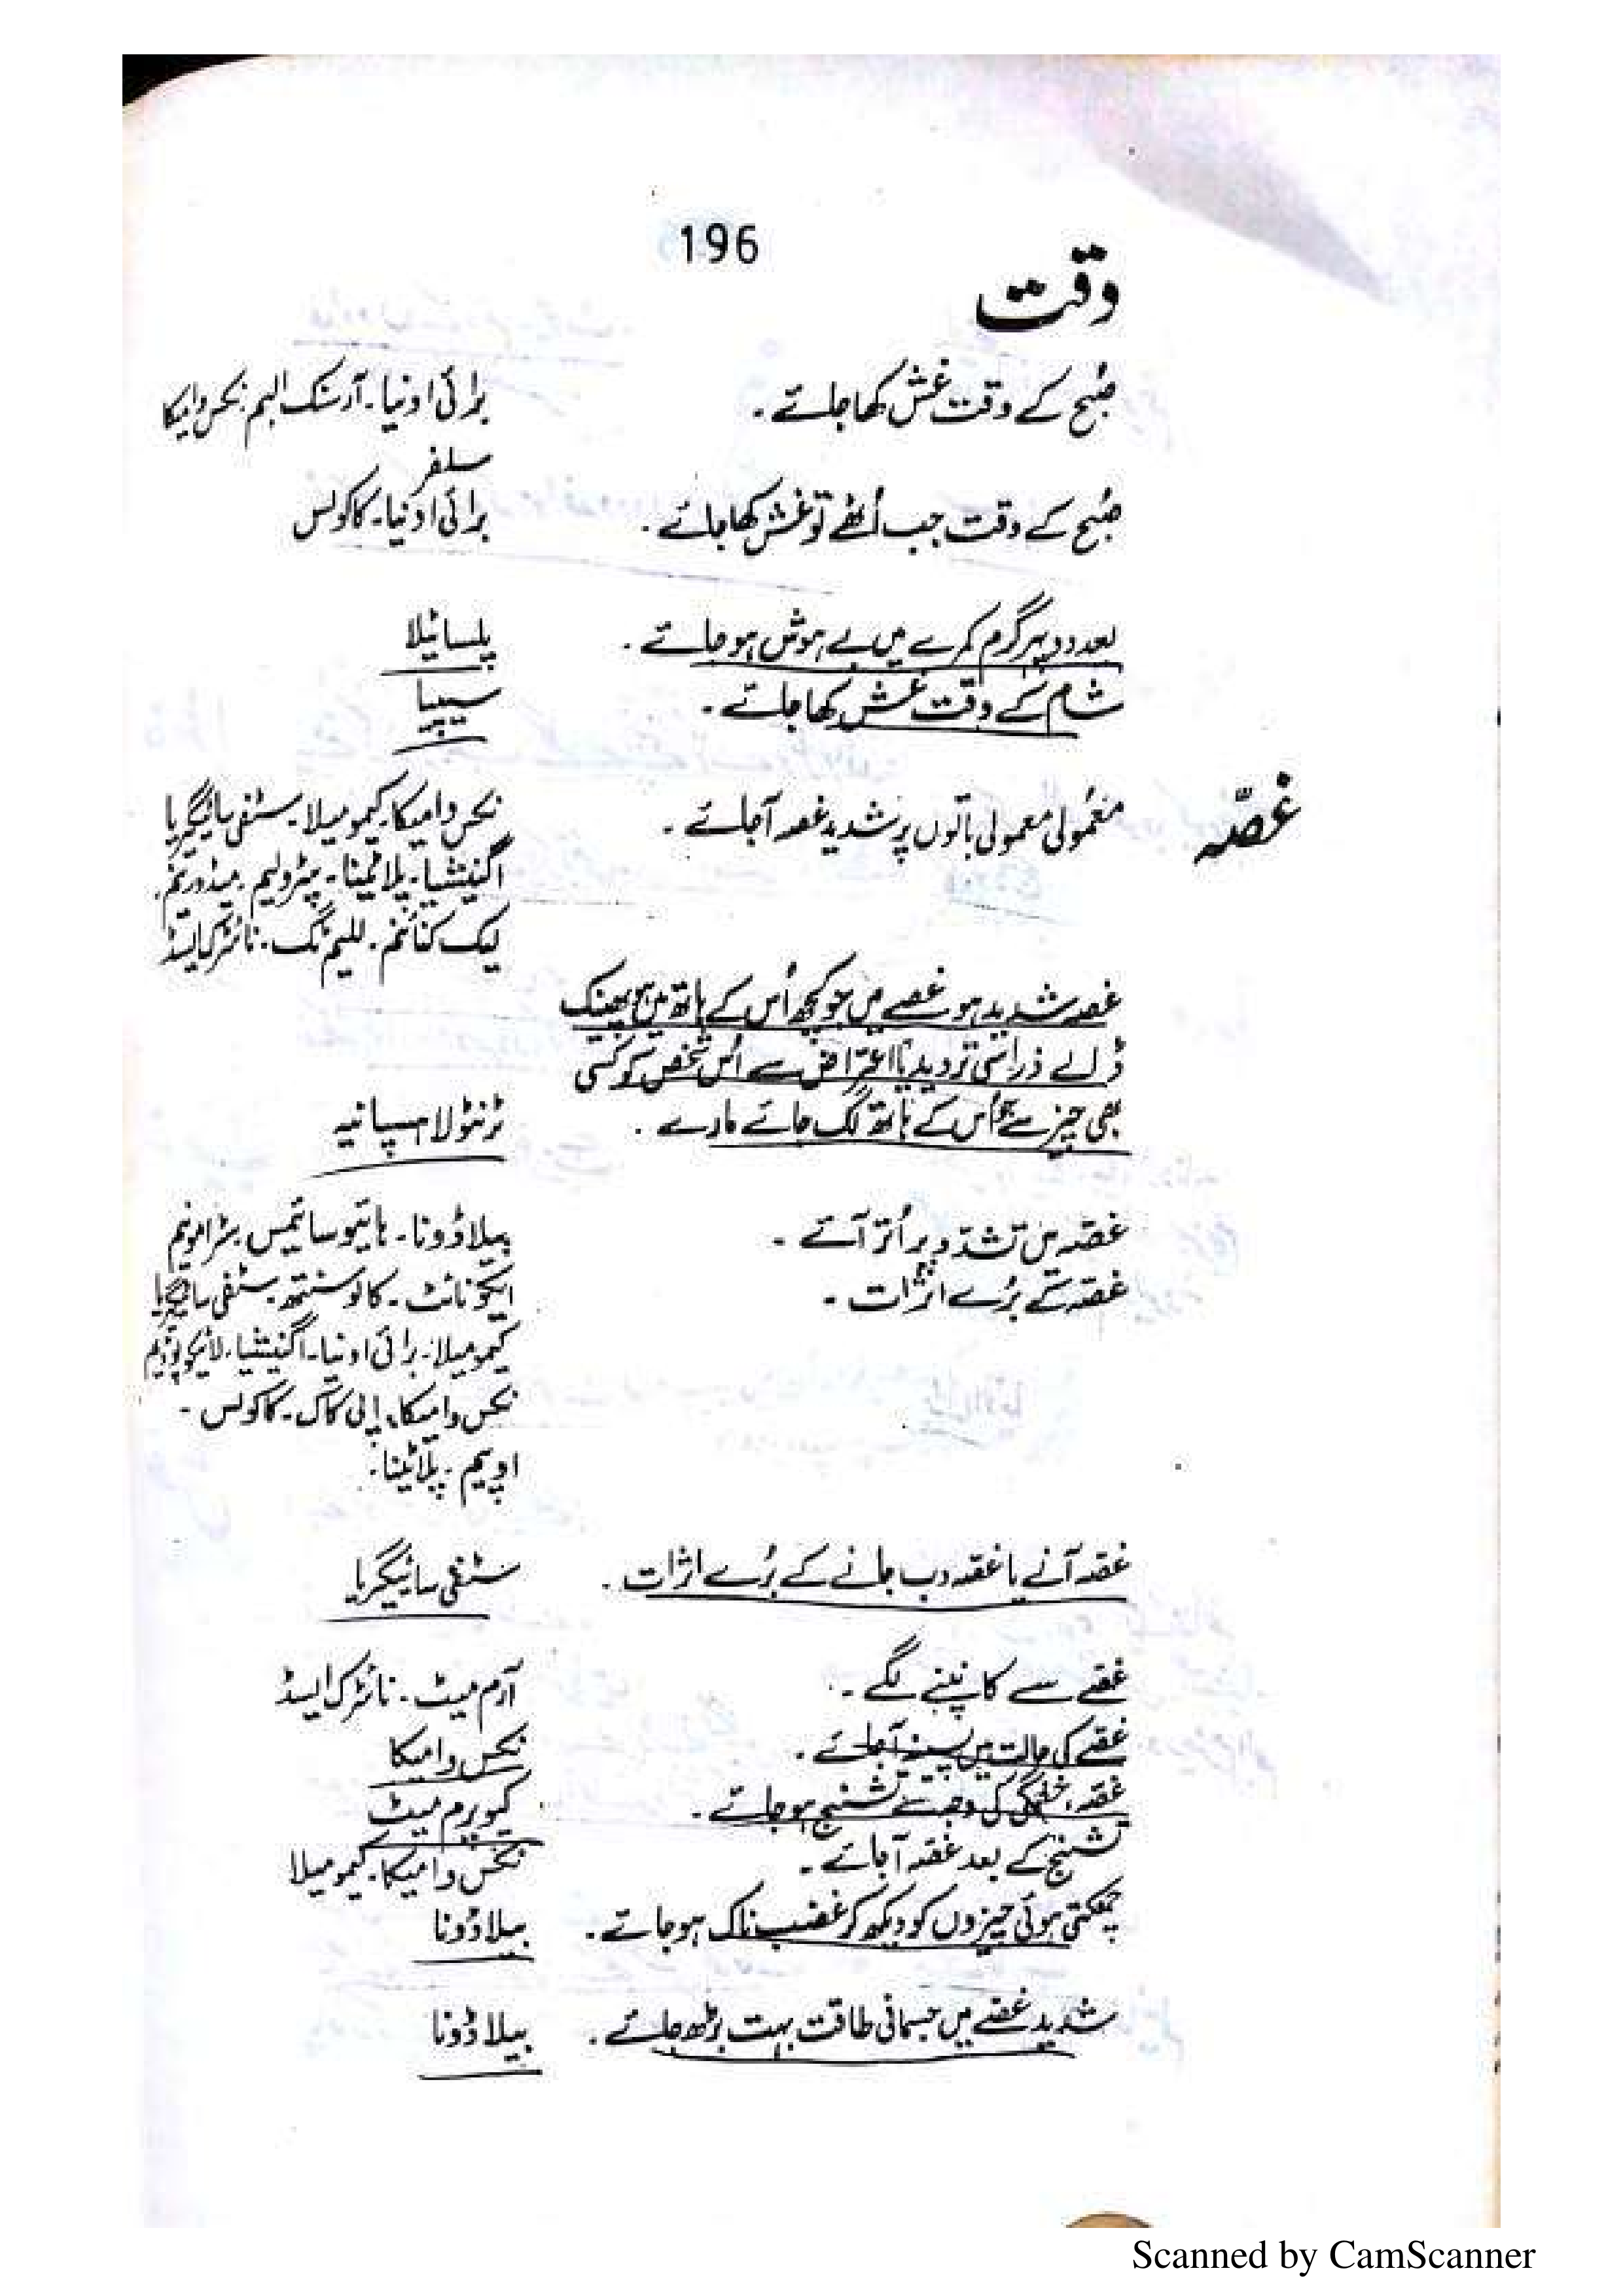 196
وقت
صُبح کے وقت غش کھا جائے۔ برائی اونیا۔ آرسنک البم۔ نکس وامیکا
سلفر
صُبح کے وقت جب اُٹھے تو غش کھا جائے۔ برائی اونیا۔ کاکولس
بعد دوپہر گرم کمرے میں بے ہوش ہو جائے۔ پلساٹیلا
شام کے وقت غش کھا جائے۔ سیپیا
غصّہ
معمُولی معمولی باتوں پر شدید غصہ آجائے۔ نکس وامیکا۔ کیمومیلا۔ سٹفی سائیگریا
اگنیشیا۔ پلاٹینا۔ پیٹرولیم۔ میڈورینم۔
لیک کنائنم۔ للیم ٹگ۔ نائٹرک ایسڈ
غصہ شدید ہو غصے میں جو کچھ اُس کے ہاتھ میں ہو پھینک
ڈالے ذرا سی تردید یا اعتراض سے اُس شخص کو کسی
بھی چیز سے جو اُس کے ہاتھ لگ جائے مارے۔ ٹرنٹولا ہسپانیہ
غصّہ میں تشدّد پر اُتر آئے۔ بیلاڈونا۔ ہائیوسائمس۔ سٹرامونیم
غصّہ کے بُرے اثرات۔ ایکونائٹ۔ کالوسنتھ۔ سٹفی سائیگریا
کیمومیلا۔ برائی اونیا۔ اگنیشیا۔ لائیکوپوڈیم
نکس وامیکا۔ اپی کاک۔ کاکولس۔
اوپیم۔ پلاٹینا۔
غصّہ آنے یا غصّہ دب جانے کے بُرے اثرات۔ سٹفی سائیگریا
غصّے سے کانپنے لگے۔ آرم میٹ۔ نائٹرک ایسڈ
غصّے کی حالت میں پسینہ آجائے۔ نکس وامیکا
غصّہ، خفگی کی وجہ سے تشنج ہو جائے۔ کیوپرم میٹ
تشنج کے بعد غصّہ آجائے۔ نکس وامیکا۔ کیمومیلا
چمکتی ہوئی چیزوں کو دیکھ کر غضب ناک ہو جائے۔ بیلاڈونا
شدید غصّے میں جسمانی طاقت بہت بڑھ جائے۔ بیلاڈونا
Scanned by CamScanner